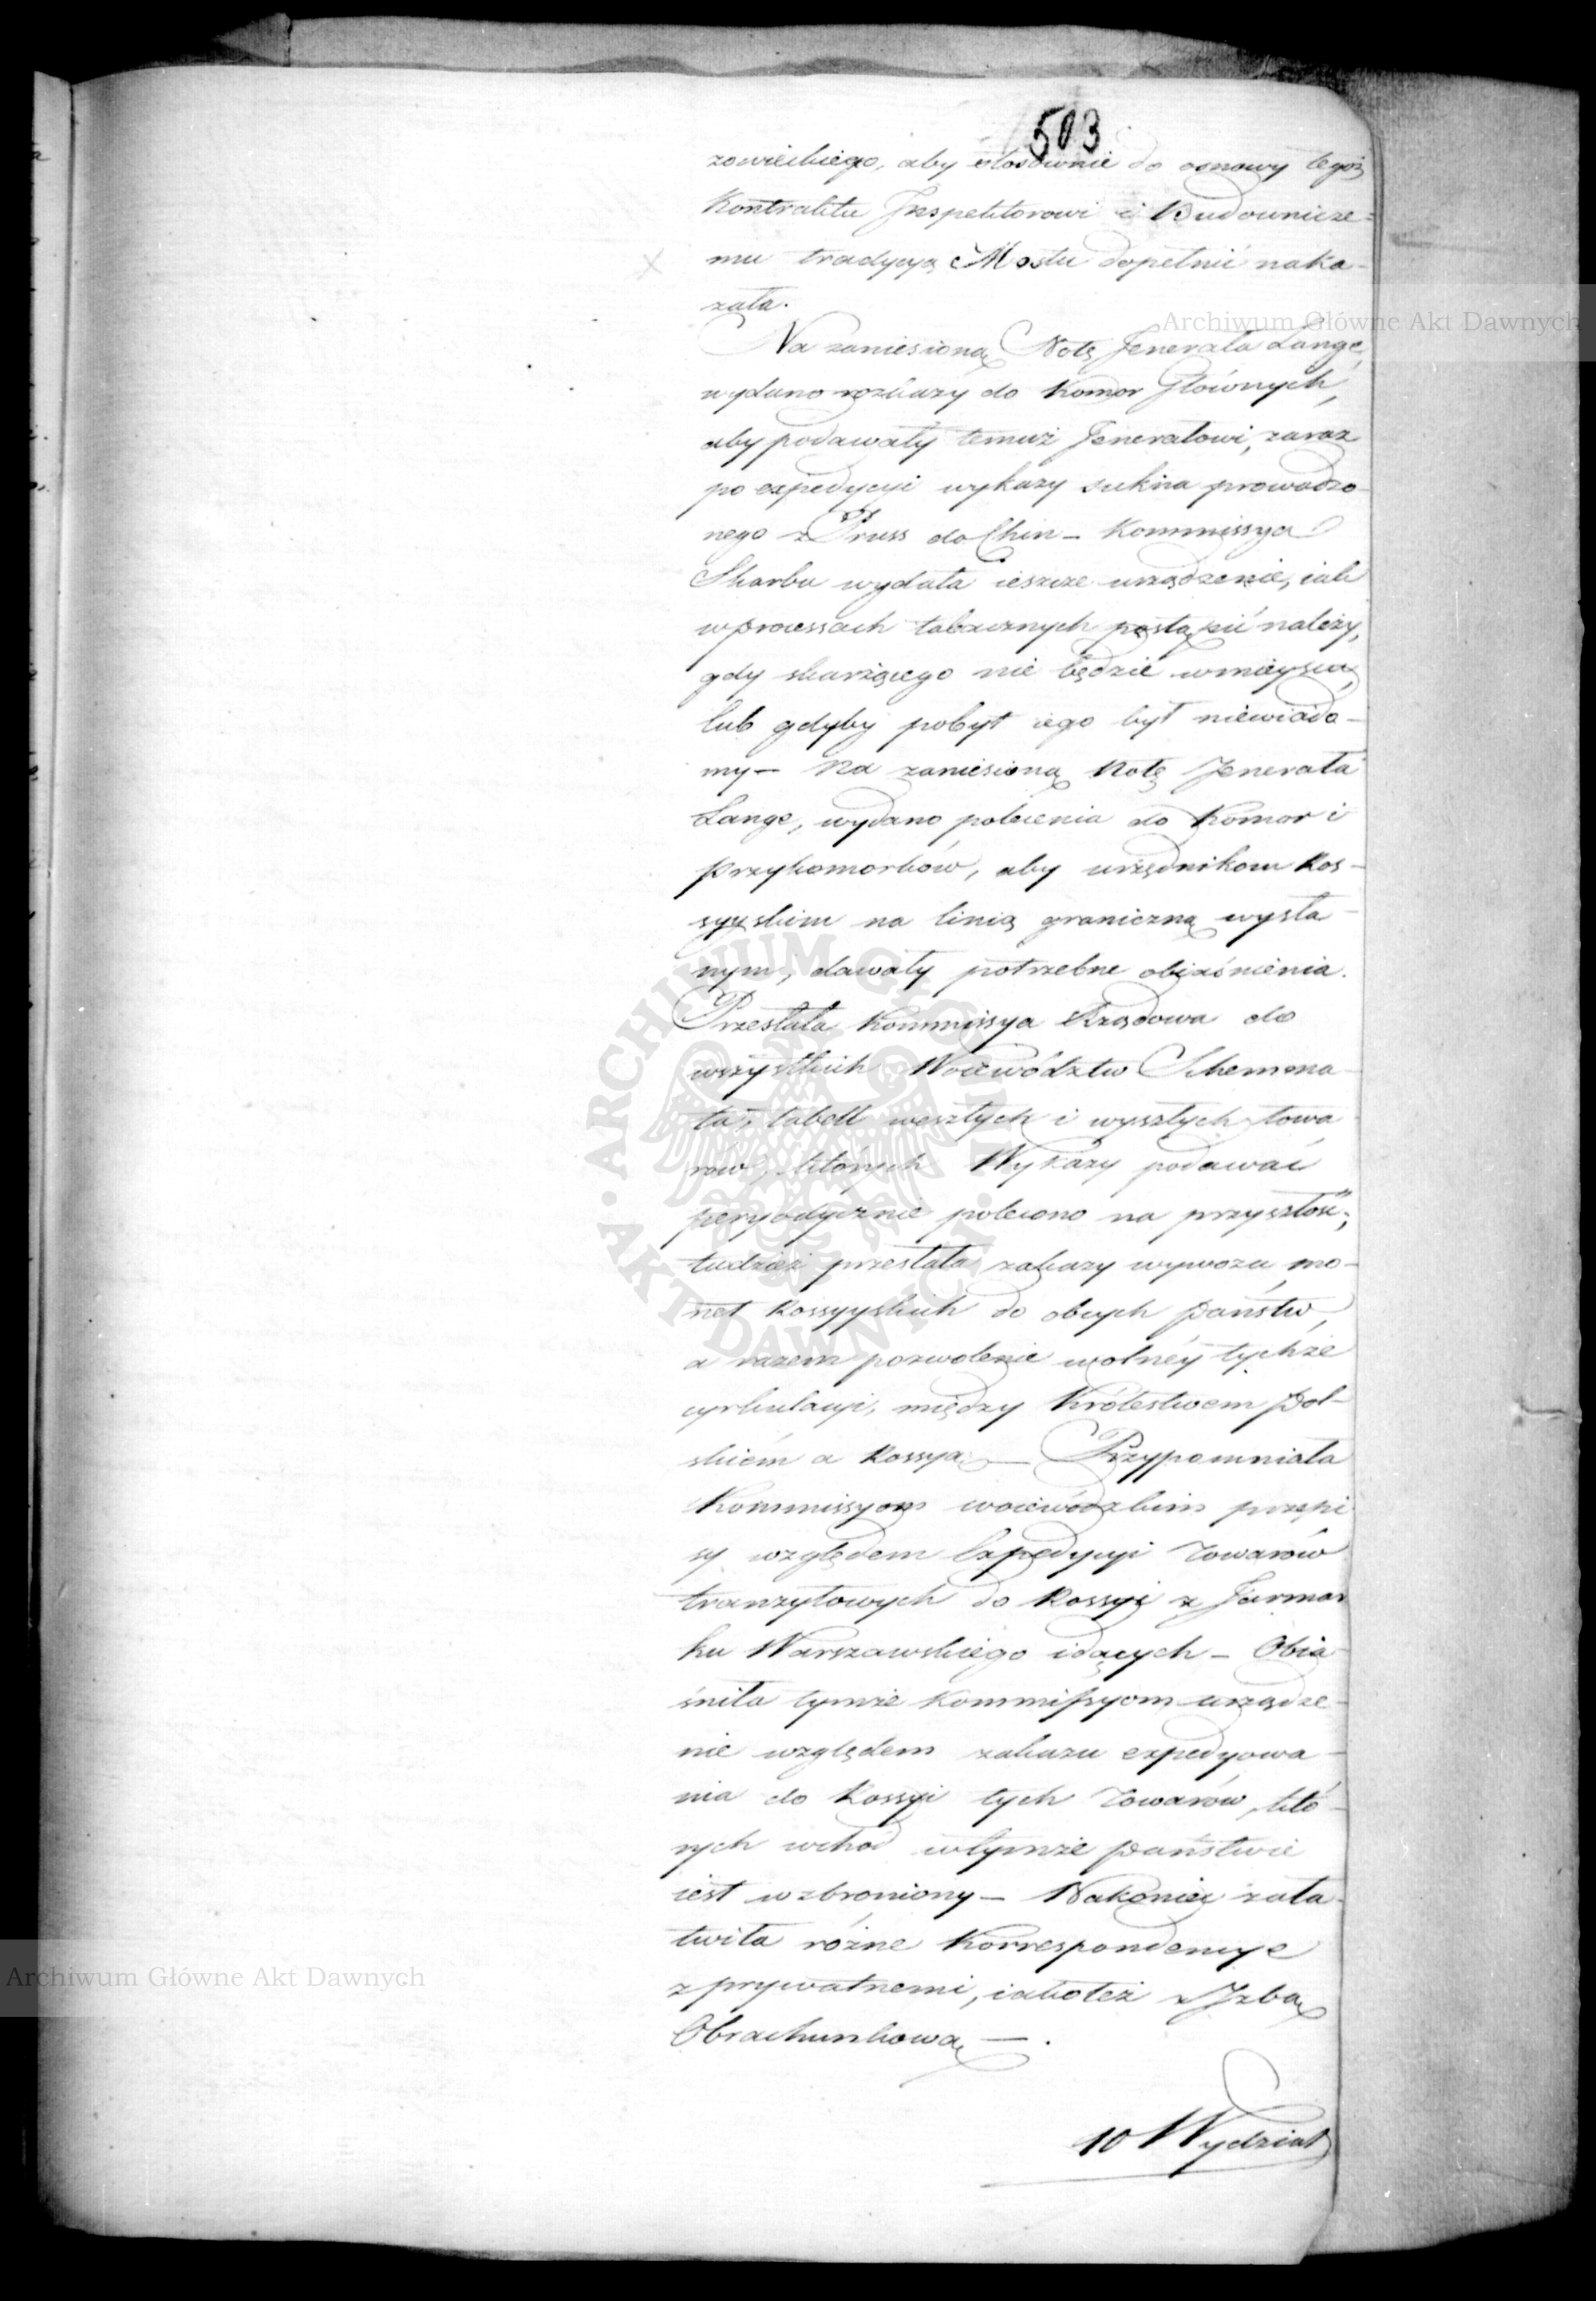 503
zowieckiego, aby stosownie do osnowy tegoż
Kontraktu Inspektorowi i Budownicze=
mu tradycyą Mostu dopełnić naka-
zała.
Archiwum Główne Akt Dawnych
Na zaniesioną Notę Jenerała Lange,
wydano rozkazy do Komor Głównych,
aby podawały temuż Jenerałowi, zaraz
po expedycyi wykazy sukna prowadzo-
nego z Pruss do Chin – Kommissya
Skarbu wydała ieszcze urządzenie, iak
w processach tabacznych postąpić należy,
gdy skarżącego nie będzie w mieyscu,
lub gdyby pobyt iego był niewiado-
my – Na zaniesioną Notę Jenerała
Lange, wydano polecenia do Komor i
Przykomorków, aby urzędnikom Ros-
syyskim na linią graniczną wysła-
nym, dawały potrzebne obiaśnienia.
Przesłała Kommissya Rządowa do
wszystkich Woiewództw Schemona-
ta, tabell weszłych i wyszłych towa
rów, których Wykazy podawać
peryodycznie polecono na przyszłość;
tudzież przesłała zakazy wywozu mo-
net Rossyyskich do obcych Państw,
a razem pozwolenie wolnéy tychże
cyrkulacyi, między Królestwem Pol-
skiém a Rossyą – Przypomniała
Kommissyom woiewódzkim przepi
sy względem Expedycyi Towarów
tranzytowych do Rossyi z Jarmar
ku Warszawskiego idących – Obia-
śniła tymże Kommissyom urządze-
nie względem zakazu expedyowa-
nia do Rossyi tych Towarów, któ-
rych wchód w tymże Państwie
iest wzbroniony – Nakoniec zała-
twiła różne Korrespondencye
z prywatnemi, iakoteż z Izbą
Obrachunkową – .
10 Wydział
ARCHIWUM GŁÓWNE · AKT DAWNYCH ·
Archiwum Główne Akt Dawnych